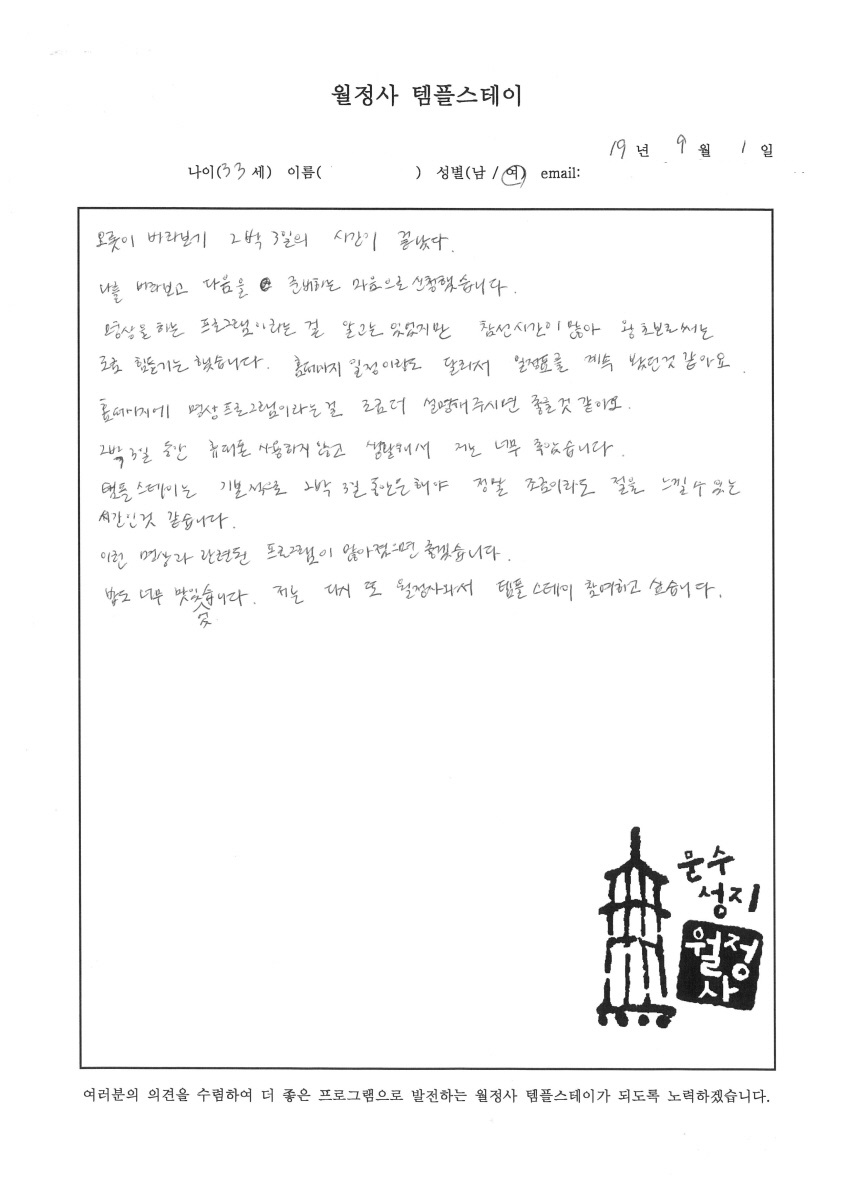 월정사 템플스테이
19 년 9 월 1 일
나이(33 세) 이름( ) 성별(남 / 여) email:
오롯이 바라보기 2박 3일의 시간이 끝났다.
나를 바라보고 다음을 준비하는 마음으로 신청했습니다.
명상을 하는 프로그램이라는 걸 알고는 있었지만 참선시간이 많아 왕초보로써는
조금 힘들기는 했습니다. 홈페이지 일정이랑도 달라서 일정표를 계속 봤던것 같아요.
홈페이지에 명상프로그램이라는걸 조금더 설명해주시면 좋을것 같아요.
2박 3일 동안 휴대폰 사용하지 않고 생활해서 저는 너무 좋았습니다.
템플스테이는 기본적으로 2박 3일 동안은 해야 정말 조금이라도 절을 느낄 수 있는
시간인것 같습니다.
이런 명상과 관련된 프로그램이 많아졌으면 좋겠습니다.
밥도 너무 맛있습니다. 저는 다시 또 월정사와서 템플스테이 참여하고 싶습니다.
었
문수
성지
월정
사
여러분의 의견을 수렴하여 더 좋은 프로그램으로 발전하는 월정사 템플스테이가 되도록 노력하겠습니다.